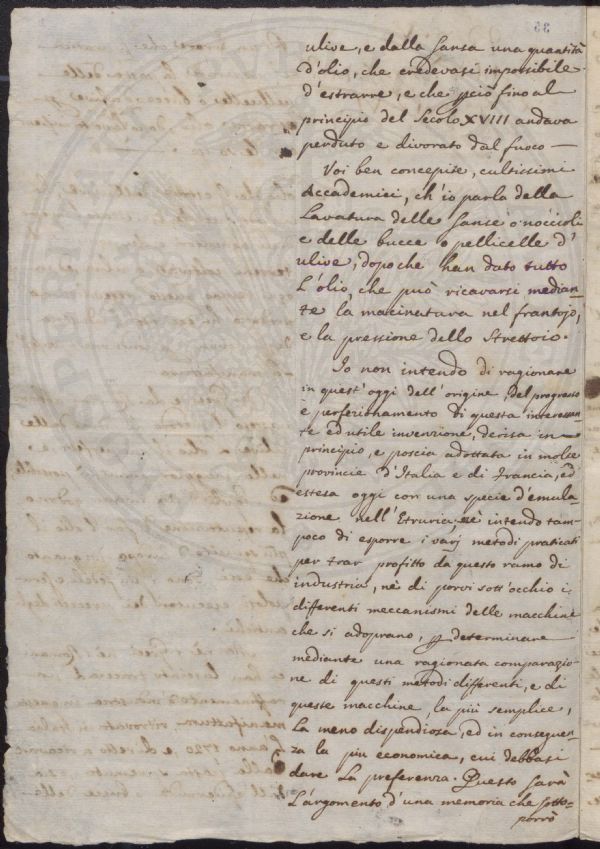 ulive, e dalla Sansa una quantità
d'olio, che credevasi impossibile
d'estrarre, e che pciò fino al
principio del Secolo XVIII andava
perduto e divorato dal fuoco —
Voi ben concepite, cultissimi
Accademici, ch'io parla della
Lavatura delle Sanse o nòccioli
e delle bucce o pellicelle d'
ulive, dopo che han dato tutto
L'olio, che può ricavarsi median-
te la macinatura nel frantojo,
e la pressione dello Strettoio.
Io non intendo di ragionare
in quest'oggi dell'origine, del progresso
e perfezionamento di questa interessan-
te ed utile invenzione, derisa in
principio, e poscia adottata in molte
provincie d'Italia e di Francia, ed
estesa oggi con una specie d'emula-
zione nell'Etruria; nè intendo tam-
poco di esporre i varj metodi praticati
per trar profitto da questo ramo di
industria, nè di porvi sott'occhio i
differenti meccanismi delle macchine
che si adoprano, p determinare
mediante una ragionata comparazio-
ne di questi metodi differenti, e di
queste macchine, la più semplice,
La meno dispendiosa, ed in conseguen-
za la più economica, cui debbasi
dare La preferenza. Questo sarà
L'argomento d'una memoria che sotto-
porrò